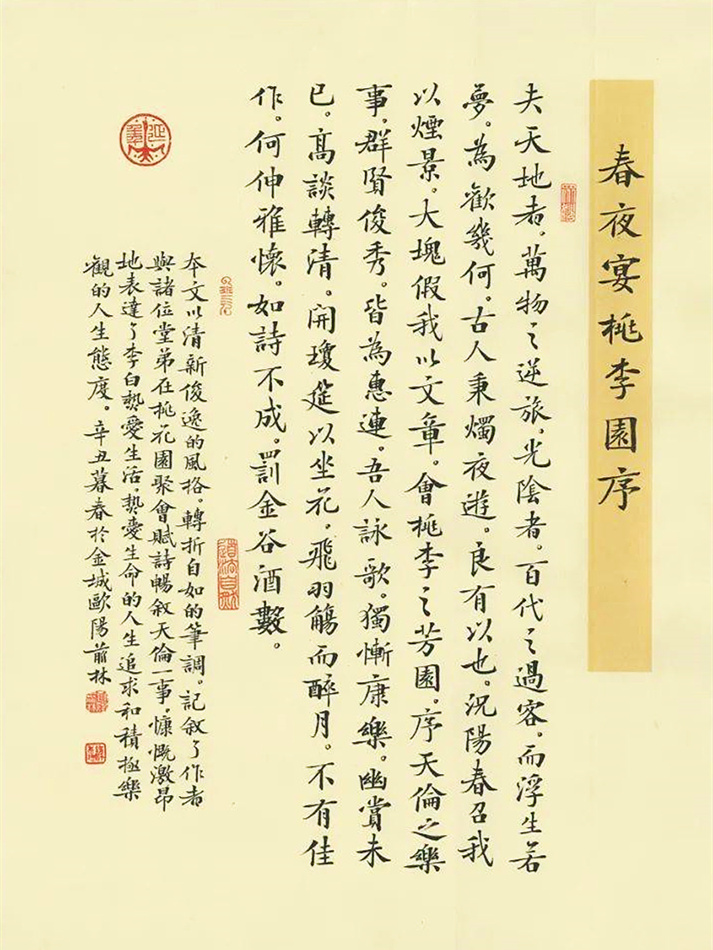 春夜宴桃李園序
夫天地者。萬物之逆旅。光陰者。百代之過客。而浮生若
夢。為歡幾何。古人秉燭夜遊。良有以也。況陽春召我
以煙景。大塊假我以文章。會桃李之芳園。序天倫之樂
事。群賢俊秀。皆為惠連。吾人詠歌。獨慚康樂。幽賞未
已。高談轉清。開瓊筵以坐花。飛羽觴而醉月。不有佳
作。何伸雅懷。如詩不成。罰金谷酒數。
道法自然
本文以清新俊逸的風格。轉折自如的筆調。記敘了作者
與諸位堂弟在桃花園聚會賦詩暢敘天倫一事。慷慨激昂
地表達了李白熱愛生活。熱愛生命的人生追求和積極樂
觀的人生態度。辛丑暮春於金城歐陽林